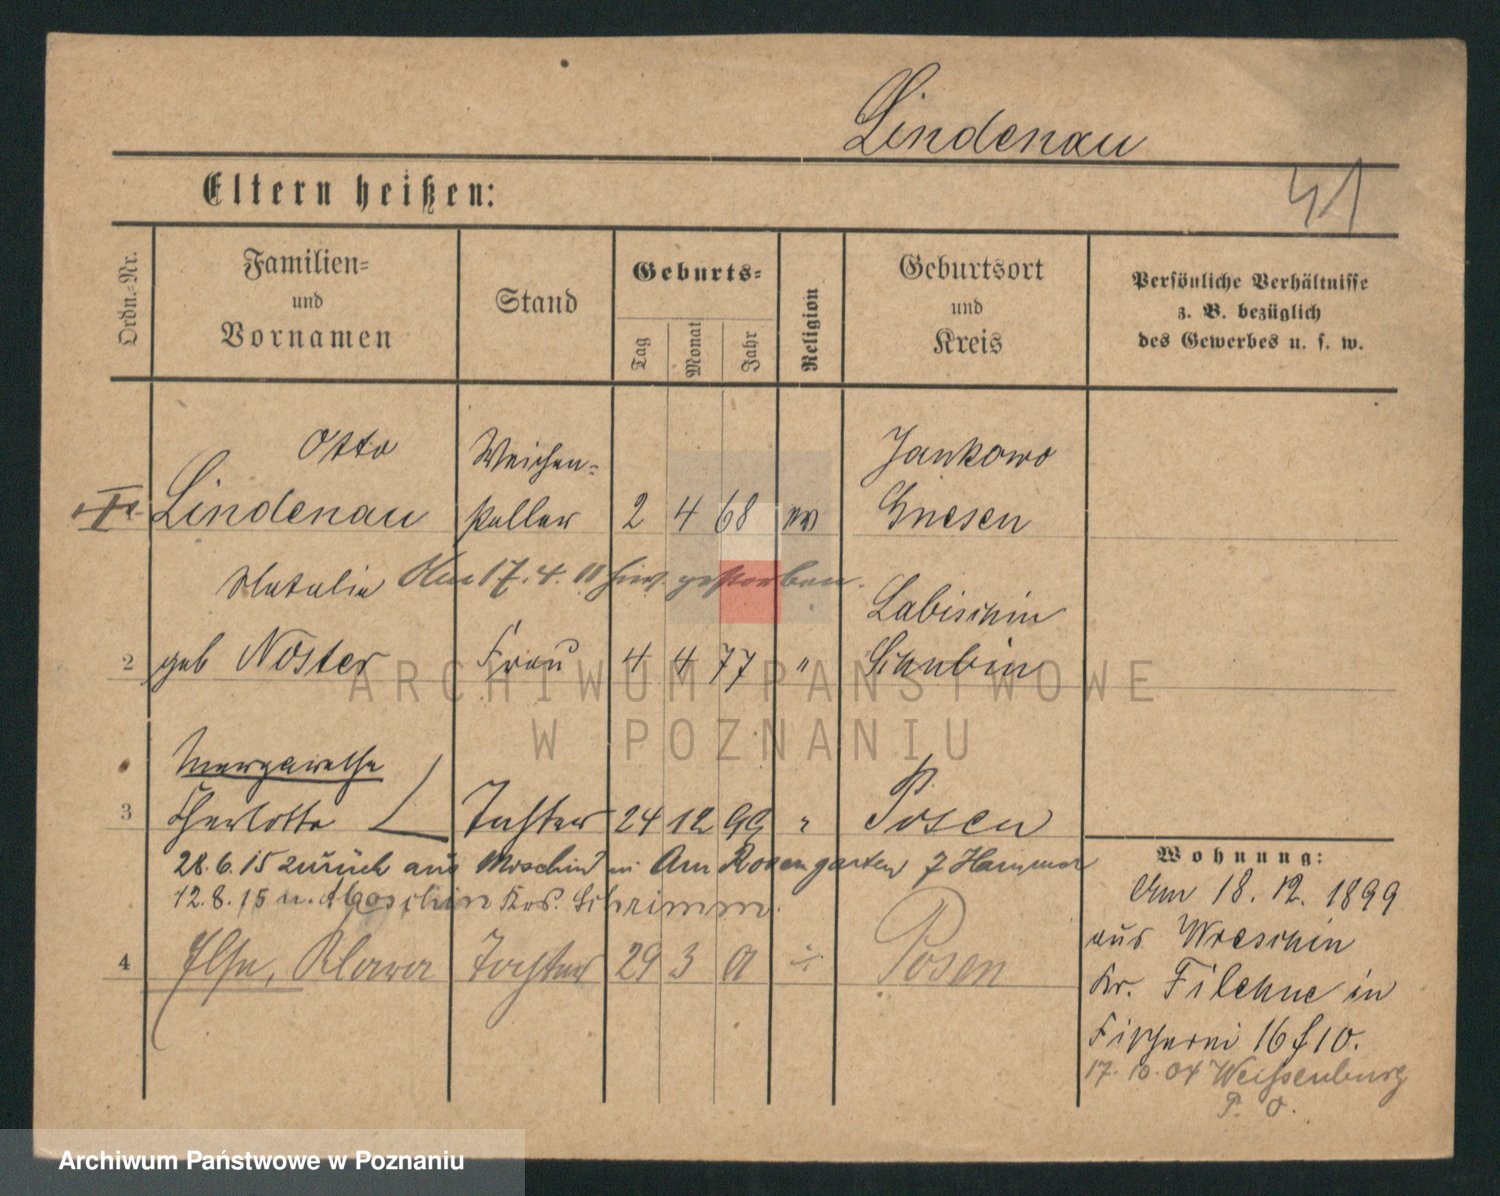 Lindenau
41
Eltern heißen:
Ordn.-Nr.
Familien-
und
Vornamen
Stand
Geburts-
Tag
Monat
Jahr
Religion
Geburtsort
und
Kreis
Persönliche Verhältnisse
z. B. bezüglich
des Gewerbes u. s. w.
Otto Weichen- Jankowo
Lindenau steller 2 4 68 ev Gnesen
Natalie Am 17. 4. 11 hier gestorben. Labischin
2 geb Noster Frau 4 4 77 " Schubin
ARCHIWUM PAŃSTWOWE
W POZNANIU
Margarethe
3 Charlotte Tochter 24 12 99 " Posen
28. 6. 15 zurück aus Moschin in Am Rosengarten 7 Hammer
12. 8. 15 n. Moschin Krs. Schrimm.
4 Ilse, Klara Tochter 29 3 01 Posen
Wohnung:
Am 18. 12. 1899
aus Wreschin
Kr. Filehne in
Fischerei 16 f 10.
17. 10. 04 Weißenburg
P. O.
Archiwum Państwowe w Poznaniu